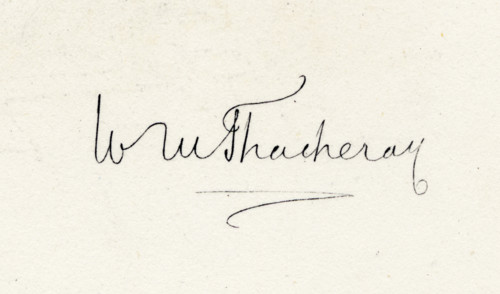 W M Thackeray